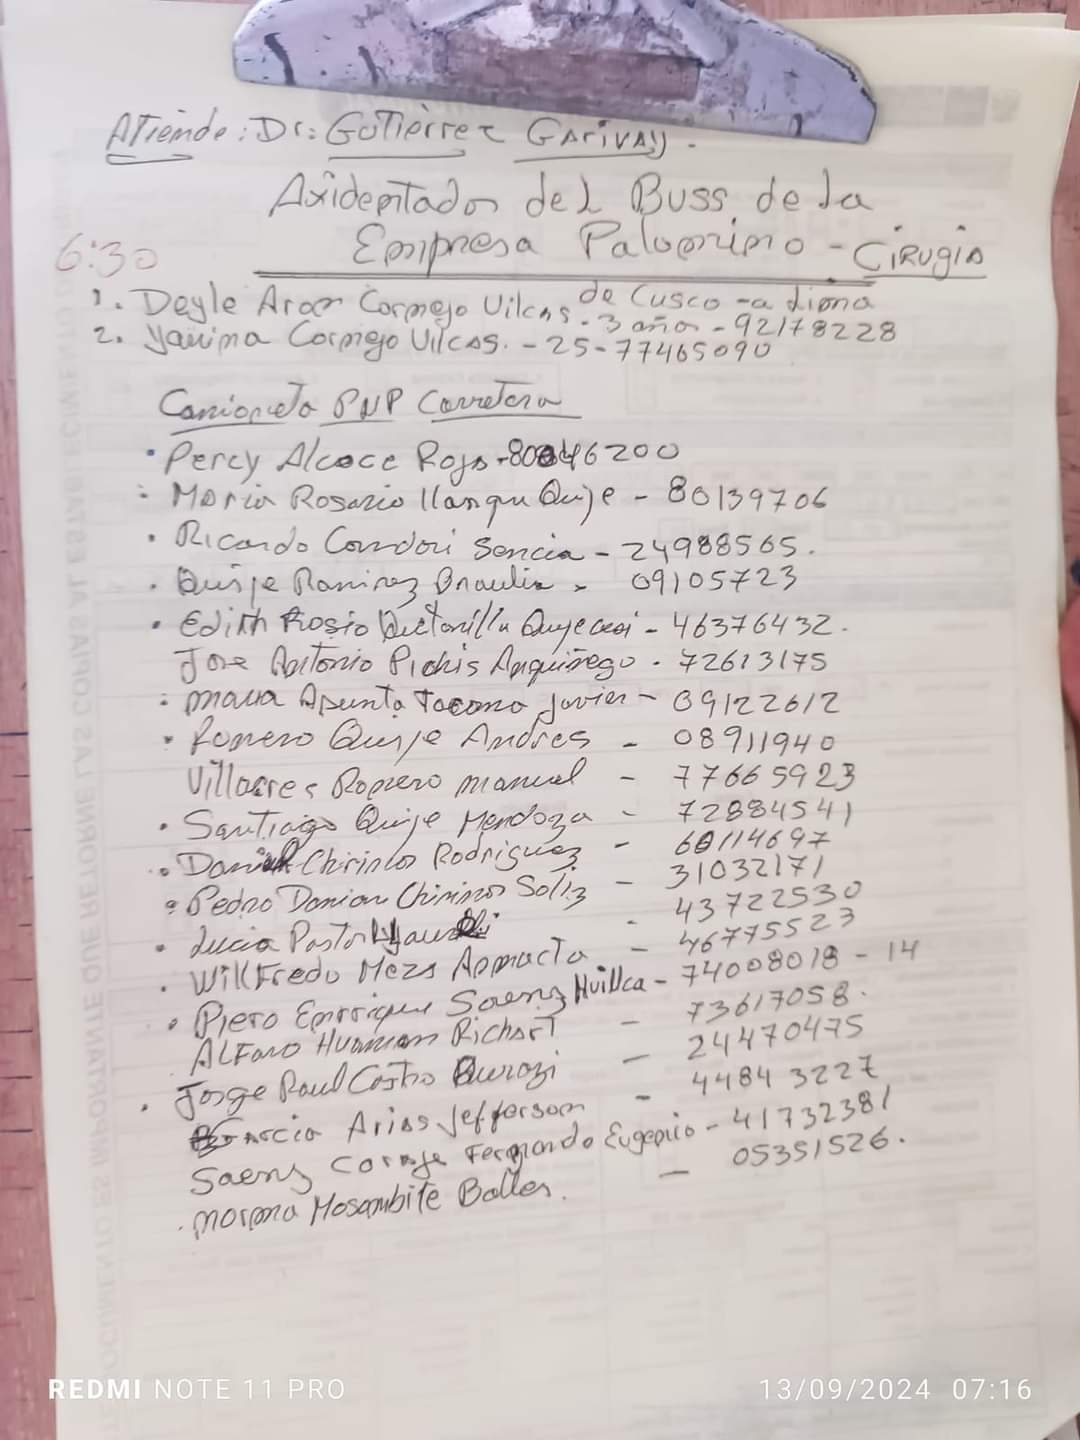 Atiende: Dr: Gutierrez Garivay.
Axidentados del Buss de la
Empresa Palomino - Cirugia
6:30
de Cusco - a Lima
1. Deyle Aron Cornejo Vilcas. 3 años - 92178228
2. Yanina Cornejo Vilcas. - 25 - 77465090
Camioneta PNP Carretera
• Percy Alcoce Rojo - 80046200
: Maria Rosario llanqu Quije - 80139706
• Ricardo Condori Sencia - 24988565.
• Quije Ramirez Braulia - 09105723
• Edith Rosio - 46376432.
Jose Antonio Pichis - 72613175
: Maria Asunta Javier - 09122612
• Romero Quije Andres - 08911940
Villacres Romero manuel - 77665923
• Santiago Quije Mendoza - 72884541
• Daniel Chirinos Rodriguez - 60114697
• Pedro Damian Chirinos Soliz - 31032171
• Lucia Pastor - 43722530
• Wilfredo Meza - 46775523
• Piero Enrrique Saenz Huillca - 74008018 - 14
Alfaro Huaman Richart - 73617058.
• Jorge Raul Castro - 24470475
Garcia Arias Jefferson - 44843227
Saenz Fernando Eugenio - 41732381
• Norma Mosombite - 05351526.
REDMI NOTE 11 PRO
13/09/2024 07:16